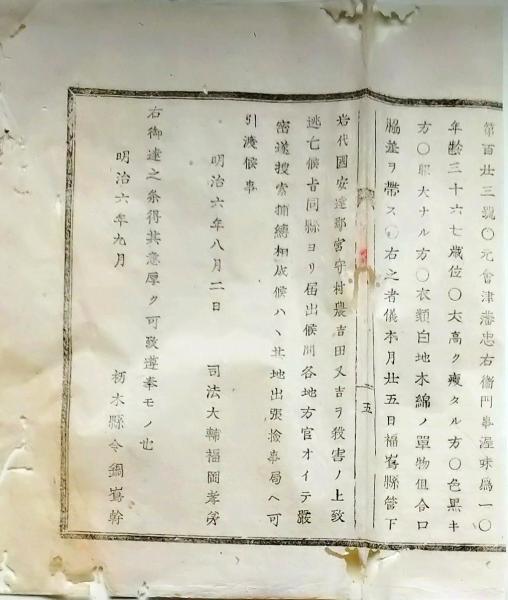 第百廿三號〇元會津藩忠右衞門事渥味爲一〇
年齡三十六七歳位〇大高ク瘦タル方〇色黒キ
方〇眼大ナル方〇衣類白地木綿ノ單物但合口
脇差ヲ帶ス〇右之者儀本月廿五日福嶌縣管下
五
岩代國安達郡宮守村農吉田又吉ヲ殺害ノ上致
逃亡候旨同縣ヨリ届出候間各地方官オイテ嚴
密遂搜索捕縳相成候ハヽ其地出張撿事局ヘ可
引渡候事
明治六年八月二日　司法大輔福岡孝弟
右御達之条得其意厚ク可致遵奉モノ也
明治六年九月　栃木縣令鍋嶌幹